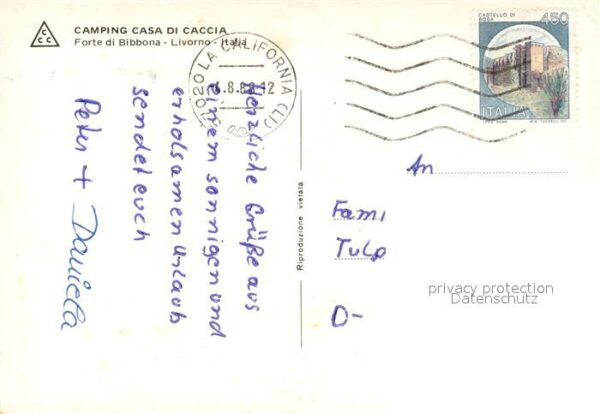 CAMPING CASA DI CACCIA
Forte di Bibbona - Livorno - Italia
CASTELLO DI
450
ITALIA
LA CALIFORNIA (LI)
Herzliche Grüße aus
einem sonnigen und
erholsamen Urlaub
sendet euch
Peter + Daniela
Riproduzione vietata
An
Fami
Tulp
D-
privacy protection
Datenschutz